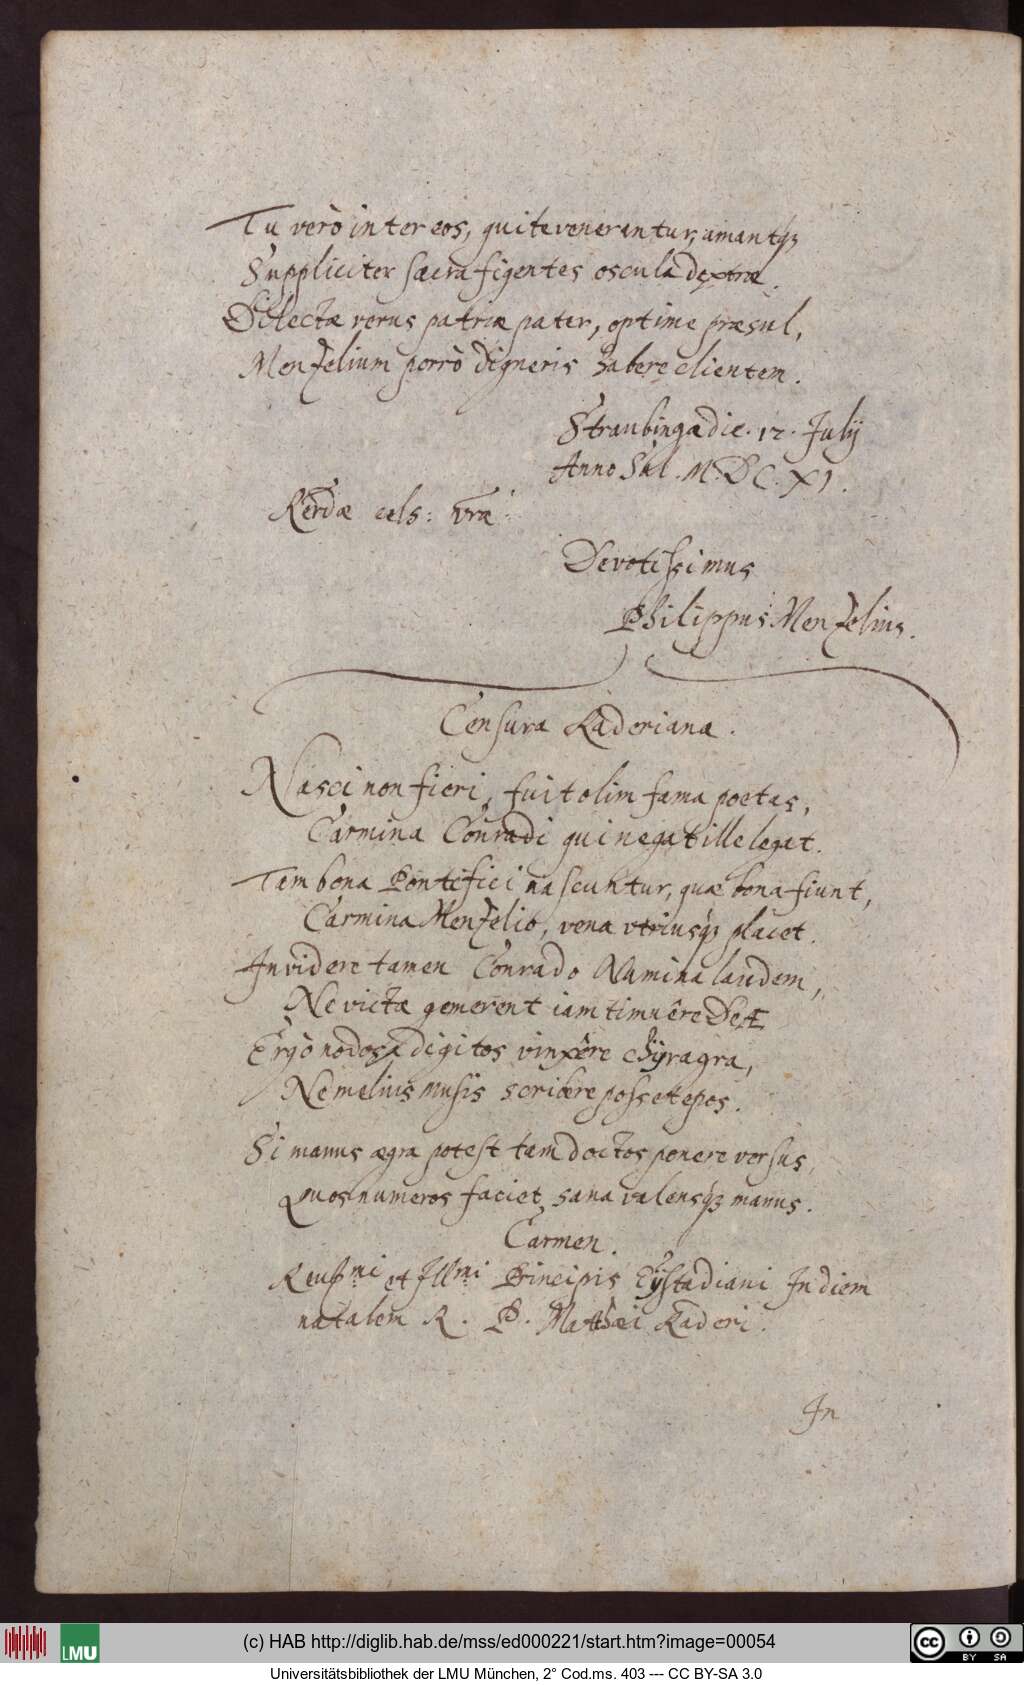 Tu verò inter eos, qui te venerantur, amantqꝫ
Suppliciter sacra figentes oscula dextræ.
Dilectæ verus patriæ pater, optime præsul,
Menzelium porrò digneris habere clientem.
Straubingæ die. 12. Julij
Anno Sal. M.DC.XI.
Rerdæ cels: vræ
Devotissimus
Philippus Menzelius.
Censura Raderiana.
Nasci non fieri, fuit olim fama poetas,
Carmina Conradi qui negat ille legat.
Tam bona Pontifici nascuntur, quæ bona fiunt,
Carmina Menzelio, vena vtriusqꝫ placet.
Invidere tamen Conrado Numina laudem,
Ne victæ gemerent iam timuêre DeÆ
Ergò nodosa digitos vinxêre chÿragra,
Ne meliùs musis scribere posset epos.
Si manus ægra potest tam doctos ponere versus,
Quos numeros faciet sana valensqꝫ manus.
Carmen.
Reuſsmi et Illmi Principis Eÿstadiani In diem
natalem R. P. Mathæi Raderi.
In
(c) HAB http://diglib.hab.de/mss/ed000221/start.htm?image=00054
LMU
cc BY SA
Universitätsbibliothek der LMU München, 2° Cod.ms. 403 --- CC BY-SA 3.0